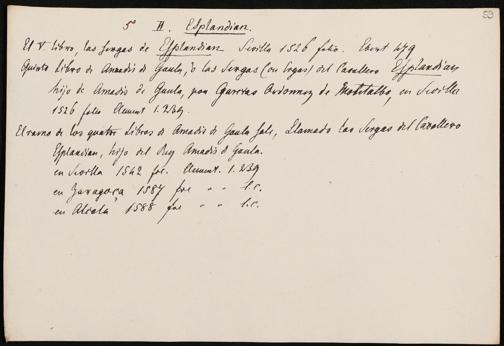 63
5° II. Esplandian.
El V. libro, las Sergas de Esplandian Sevilla 1526 folio. Ebert 479
Quinto libro de Amadis de Gaula, o las Sergas (ou Ergas) del Cavallero Esplandian,
hijo de Amadis de Gaula, por Garcias Ordonnez de Montalbo, en Sevilla
1526 folio Clement. 1. 239.
El ramo de los quatro libros de Amadis de Gaula sale, Llamado las Sergas del Cavallero
Esplandian, hijo del Rey Amadis d Gaula.
en Sevilla 1542 fol. Clement. 1. 239
en Zaragoça 1587 fol „ „ l.c.
en Alcala 1588 fol „ „ l.c.